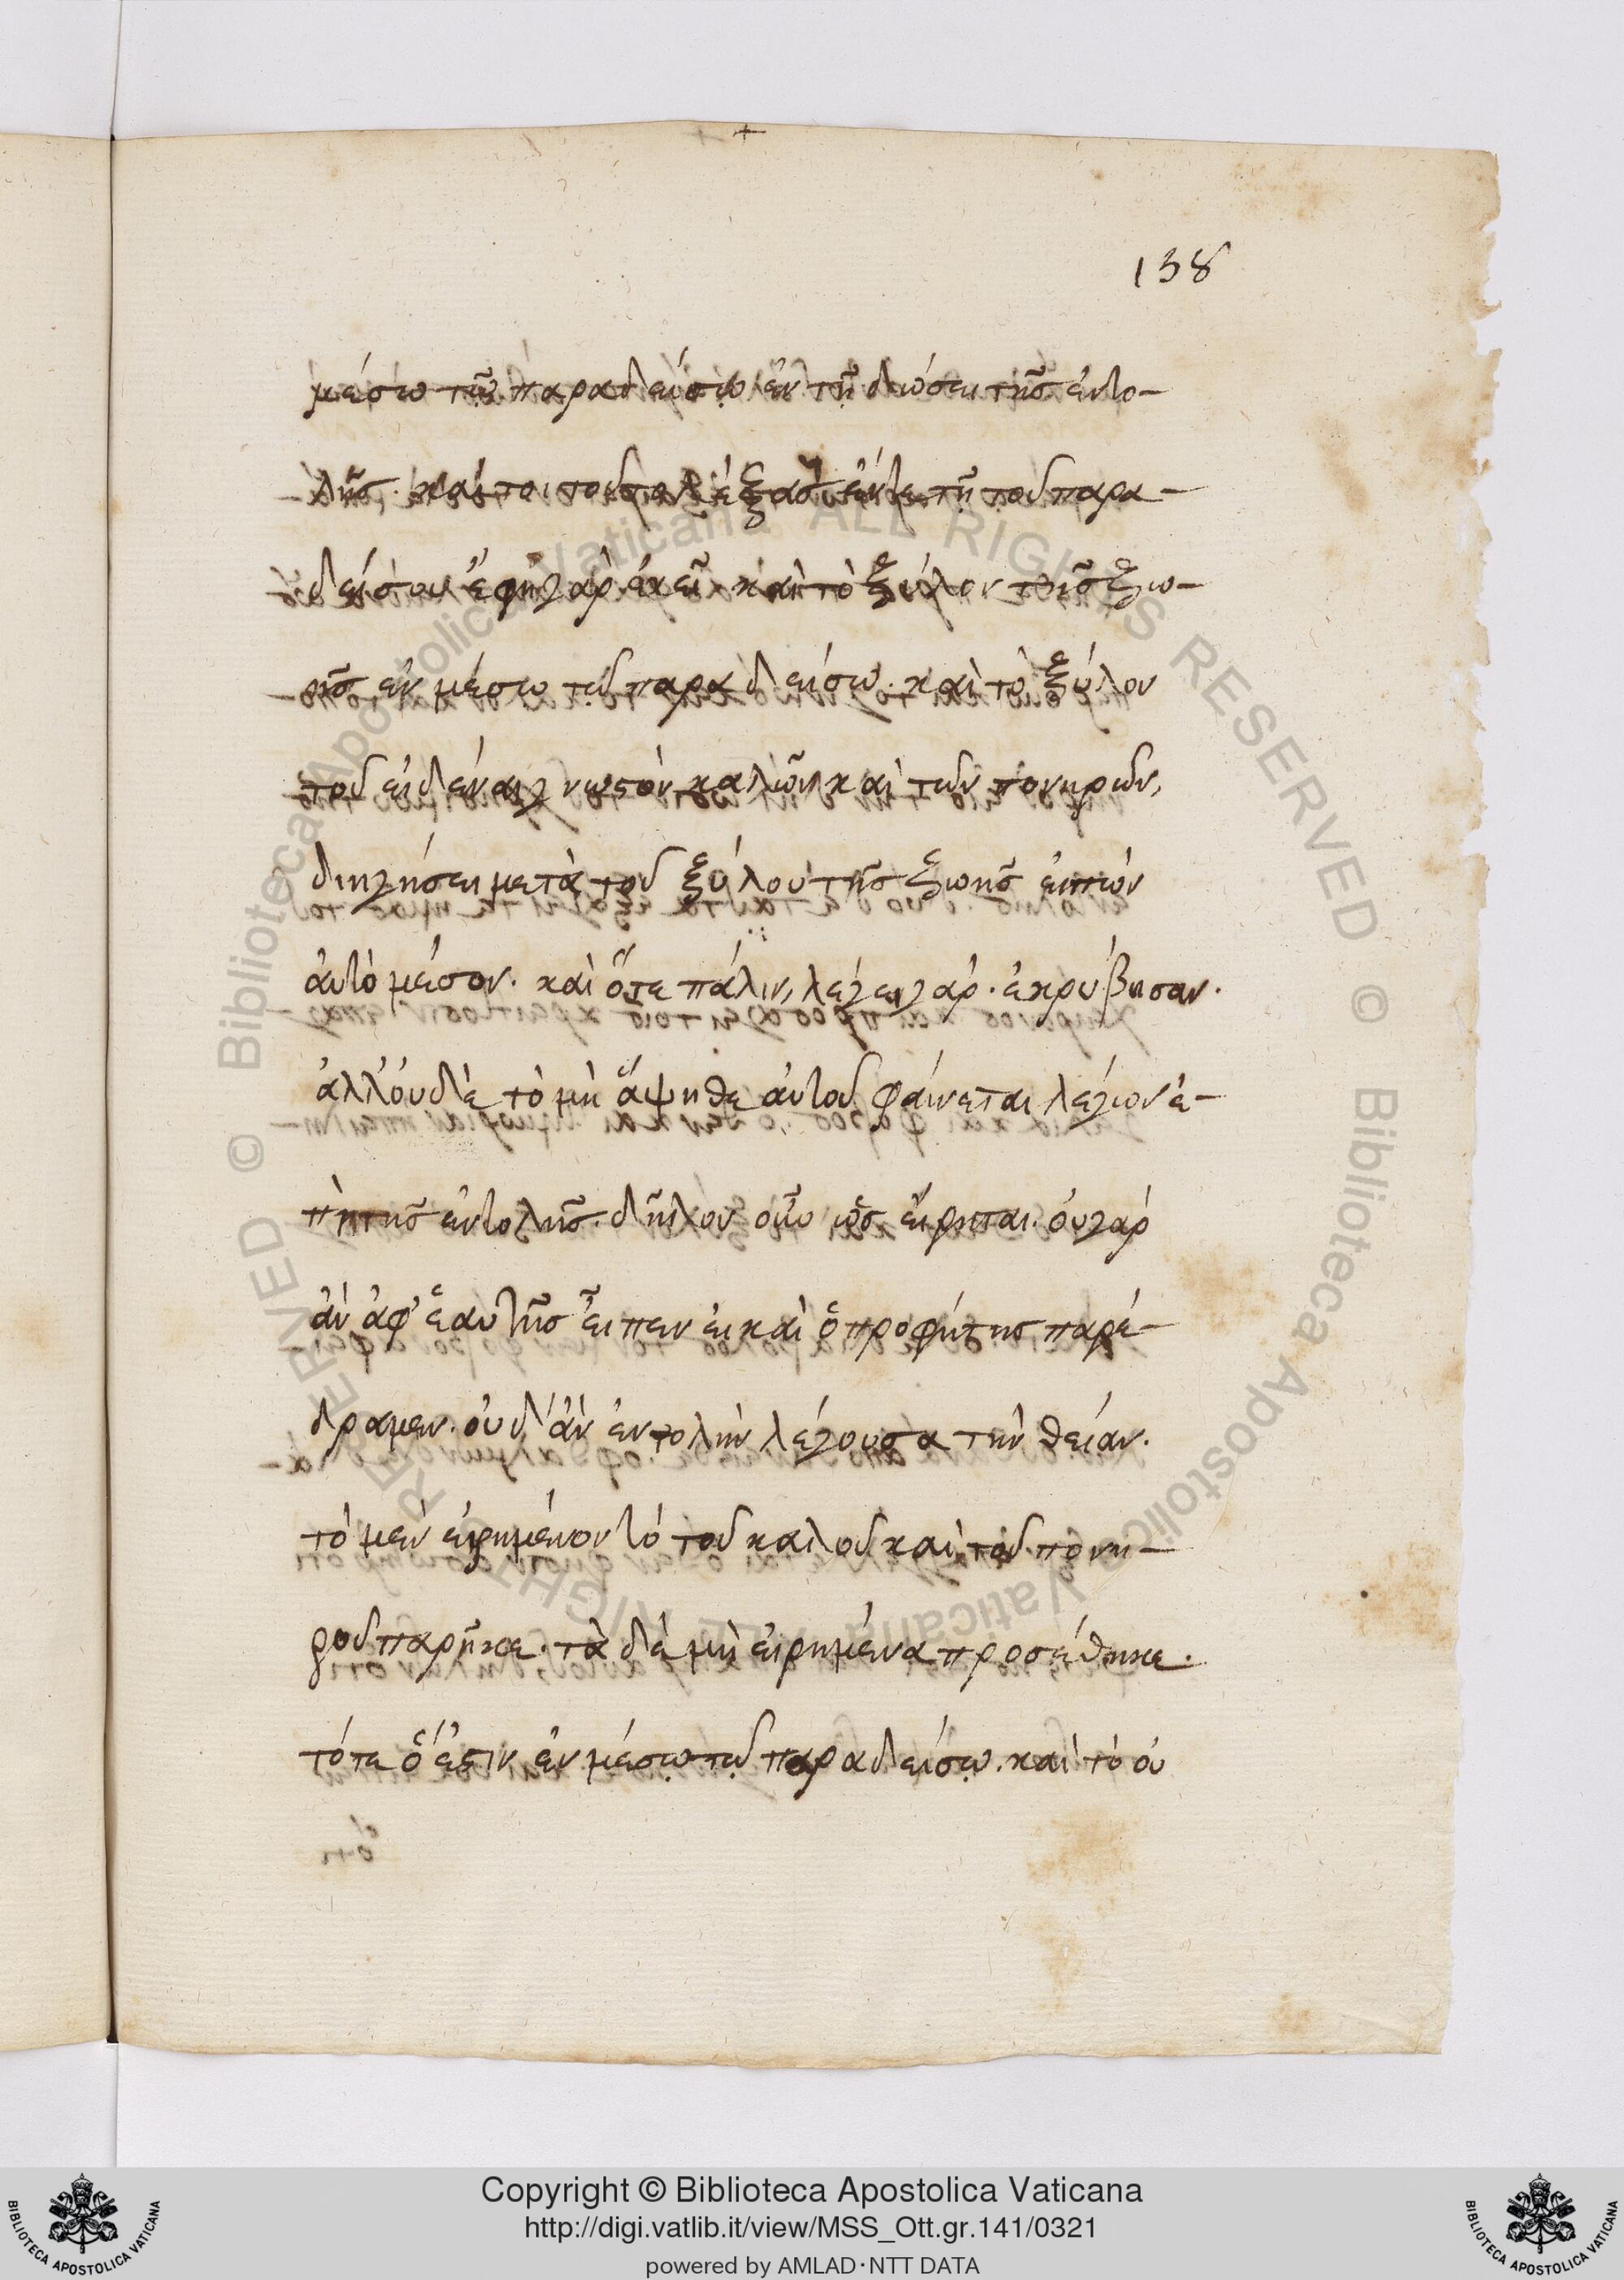 138
μέσω τῶ παραδείσω ἐν τῇ δώσει τῆς ἐντο-
λῆς. καίτοι τοῦτο λέξας ἔν τε τῇ τοῦ παρα-
δείσου ἔφη γὰρ ἐκεῖ καὶ τὸ ξύλον τῆς ζω-
ῆς ἐν μέσω τῷ παραδείσω. καὶ τὸ ξύλον
τοῦ εἰδέναι γνωστὸν καλῶν καὶ τῶν πονηρῶν,
διηγήσει μετὰ τοῦ ξύλου τῆς ζωῆς εἰπὼν
αὐτὸ μέσον. καὶ ὅτε πάλιν, λέγει γάρ. ἐκρύβησαν.
ἀλλ' οὐδὲ τὸ μὴ ἅψηθε αὐτοῦ φαίνεται λέγων ἐ-
πὶ τῆς ἐντολῆς. δῆλον οὖν ὡς εἴρηται. οὐ γὰρ
ἂν ἀφ' ἑαυτῆς εἶπεν εἰ καὶ ὁ προφήτης παρέ-
δραμεν. οὐδ' ἂν ἐντολὴν λέγουσα τὴν θείαν.
τὸ μὲν εἰρημένον τὸ τοῦ καλοῦ καὶ τοῦ πονη-
ροῦ παρῆκε. τὰ δὲ μὴ εἰρημένα προσέθηκε.
τότε ὅ ἐστιν ἐν μέσῳ τῷ παραδείσῳ. καὶ τὸ οὐ
Copyright © Biblioteca Apostolica Vaticana
http://digi.vatlib.it/view/MSS_Ott.gr.141/0321
powered by AMLAD·NTT DATA